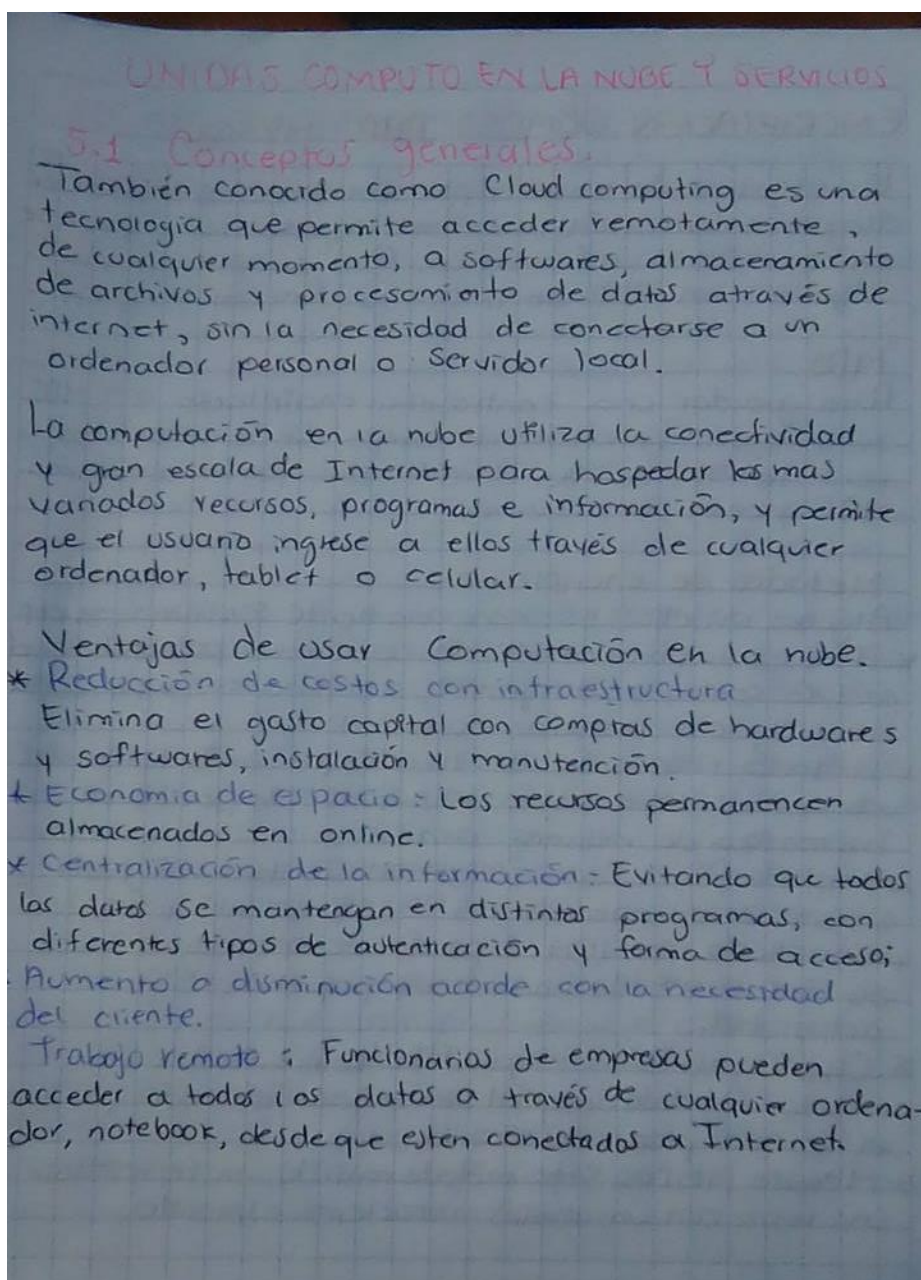 UNIDAS COMPUTO EN LA NUBE Y SERVICIOS
5.1 Conceptos generales.
También conocido como Cloud computing es una
tecnología que permite acceder remotamente,
de cualquier momento, a softwares, almacenamiento
de archivos y procesamiento de datos através de
internet, sin la necesidad de conectarse a un
ordenador personal o Servidor local.
La computación en la nube utiliza la conectividad
y gran escala de Internet para hospedar los mas
variados recursos, programas e información, y permite
que el usuario ingrese a ellos través de cualquier
ordenador, tablet o celular.
Ventajas de usar Computación en la nube.
* Reducción de costos con infraestructura
Elimina el gasto capital con compras de hardwares
y softwares, instalación y manutención.
* Economía de espacio: Los recursos permanencen
almacenados en online.
* Centralización de la información: Evitando que todos
los datos se mantengan en distintos programas, con
diferentes tipos de autenticación y forma de acceso;
. Aumento o disminución acorde con la necesidad
del cliente.
Trabajo remoto: Funcionarios de empresas pueden
acceder a todos los datos a través de cualquier ordena-
dor, notebook, desde que esten conectados a Internet.